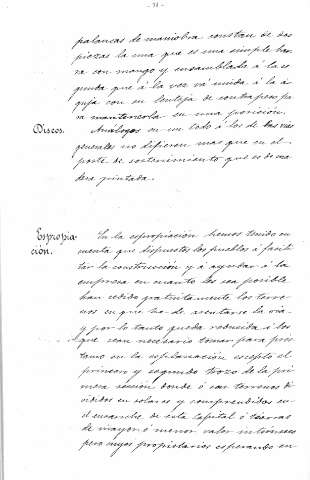 - 31 -
palancas de maniobra constan de dos
piezas la una que es una simple bar-
ra con mango y ensamblada á la se-
gunda que á la vez vá unida á la a-
guja con su lenteja de contrapeso pa-
ra mantenerla en una posición.
Discos. Análogos en un todo á los de las vías
generales no difieren mas que en el
poste de sostenimiento que es de ma-
dera pintada.
Espropia-
ción. En la espropiación hemos tenido en
cuenta que dispuestos los pueblos á facili-
tar la construcción y á ayudar á la
empresa en cuanto les sea posible
han cedido gratuitamente los terre-
nos en que ha de asentarse la vía
y por lo tanto queda reducida á los
que sean necesario tomar para prés-
tamo en la esplanación escepto el
primero y segundo trozo de la pri-
mera sección donde ó son terrenos di-
vididos en solares y comprendidos en
el ensanche de esta capital ó tierras
de mayor ó menor valor intrínseco
pero cuyos propietarios esperando en-